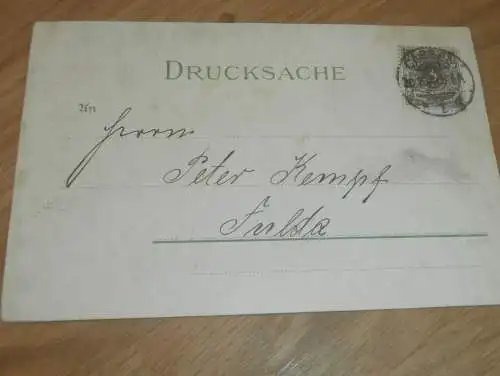 DRUCKSACHE
Herrn
Peter Kempf
Fulda